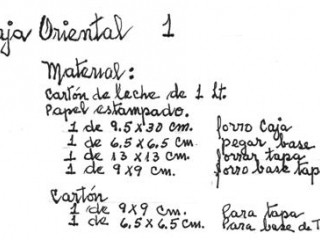 aja Oriental 1
Material:
Cartón de leche de 1 lt.
Papel estampado.
1 de 9.5 x 30 cm. forro caja
1 de 6,5 x 6,5 cm. pegar base
1 de 13 x 13 cm. forrar tapa
1 de 9 x 9 cm. forro base tap
Cartón
1 de 9 x 9 cm. Para tapa
1 de 6,5 x 6,5 cm. Para base de T